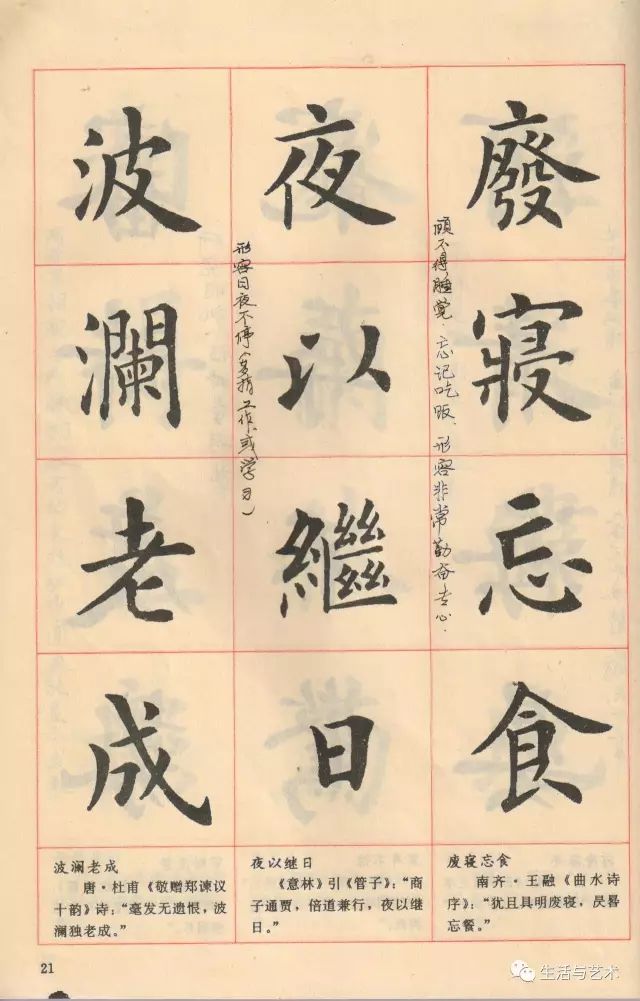 廢寢忘食
顾不得睡觉.忘记吃饭.形容非常勤奋专心.
夜以繼日
形容日夜不停(多指工作或学习)
波瀾老成
废寝忘食
南齐·王融《曲水诗
序》:“犹且具明废寝,昃晷
忘餐。”
夜以继日
《意林》引《管子》:“商
子通贾,倍道兼行,夜以继
日。”
波澜老成
唐·杜甫《敬赠郑谏议
十韵》诗:“毫发无遗恨,波
澜独老成。”
21
生活与艺术